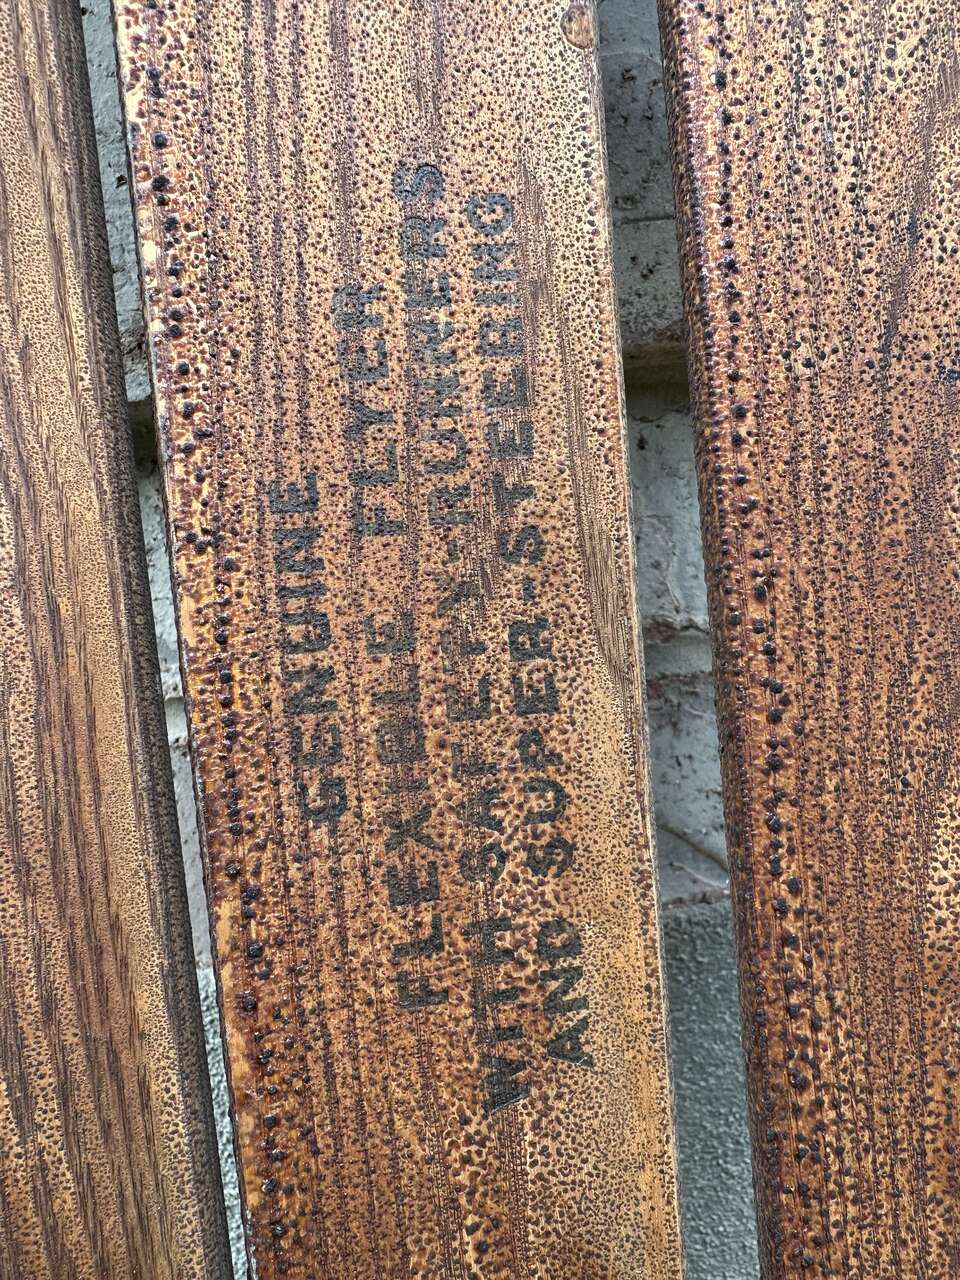 GENUINE
FLEXIBLE FLYER
WITH SAFETY-RUNNERS
AND SUPER-STEERING